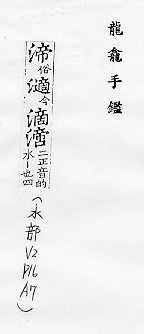 龍龕手鑑
渧俗㵂今滴渧二正音的水—也四
(水部
V2
P16
A7)